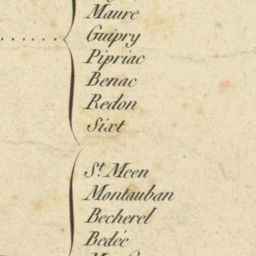 Maure
Guipry
Pipriac
Benac
Redon
Sixt
St. Meen
Montauban
Becherel
Bedée